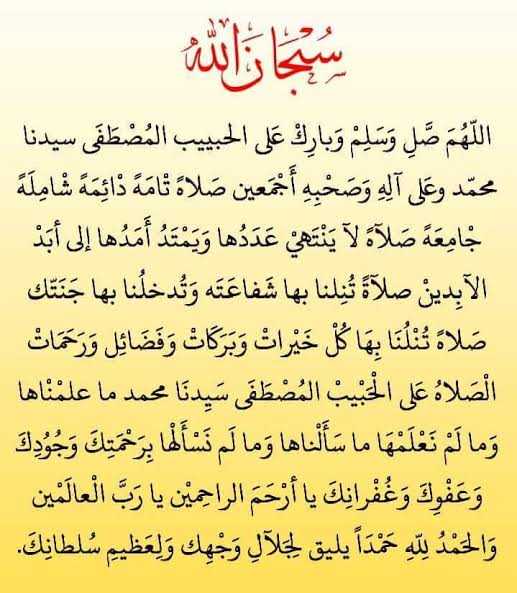 سُبْحَانَ اللهُ
اللّهُمَ صَّلِ وَسَلِمْ وَبارِكْ عَلى الحبييب المُصْطَفَى سيدنا
محمّد وعَلى آلِهِ وَصَحْبِهِ أَجْمَعين صَلاةً تْامَةً دْائِمَةً شْامِلَةً
جْامِعَةً صَلآةً لآ يَنْتَهيْ عَدَدُها وَيَمْتَدُ أَمَدُها إلى أبَدْ
الآبِدينْ صلآةً تُنِلنا بها شَفاعَتَه وَتُدخلُنا بها جَنَتّك
صَلاةً تُنْلُنَا بِهَا كُلْ خَيْراتْ وَبَرَكَاتْ وَفَضَائِل وَرَحَمَاتْ
الْصَلاهُ عَلى الْحَبْيبْ المُصْطَفَى سَيِدنَا محمد ما علمْناها
وَما لَمْ نَعْلَمْهَا ما سَأَلْناها وَما لَم نَسْأَلْها بِرَحْمَتِكَ وَجُودِكَ
وَعَفْوِكَ وَغُفْرانِكَ يا أرْحَمَ الراحِمِيْن يا رَبَّ الْعالَمْين
وَالحَمْدُ لِلّهِ حَمْدَاً يليق لِجَلآلِ وَجْهِك وَلِعَظيمِ سُلطانِكَ.